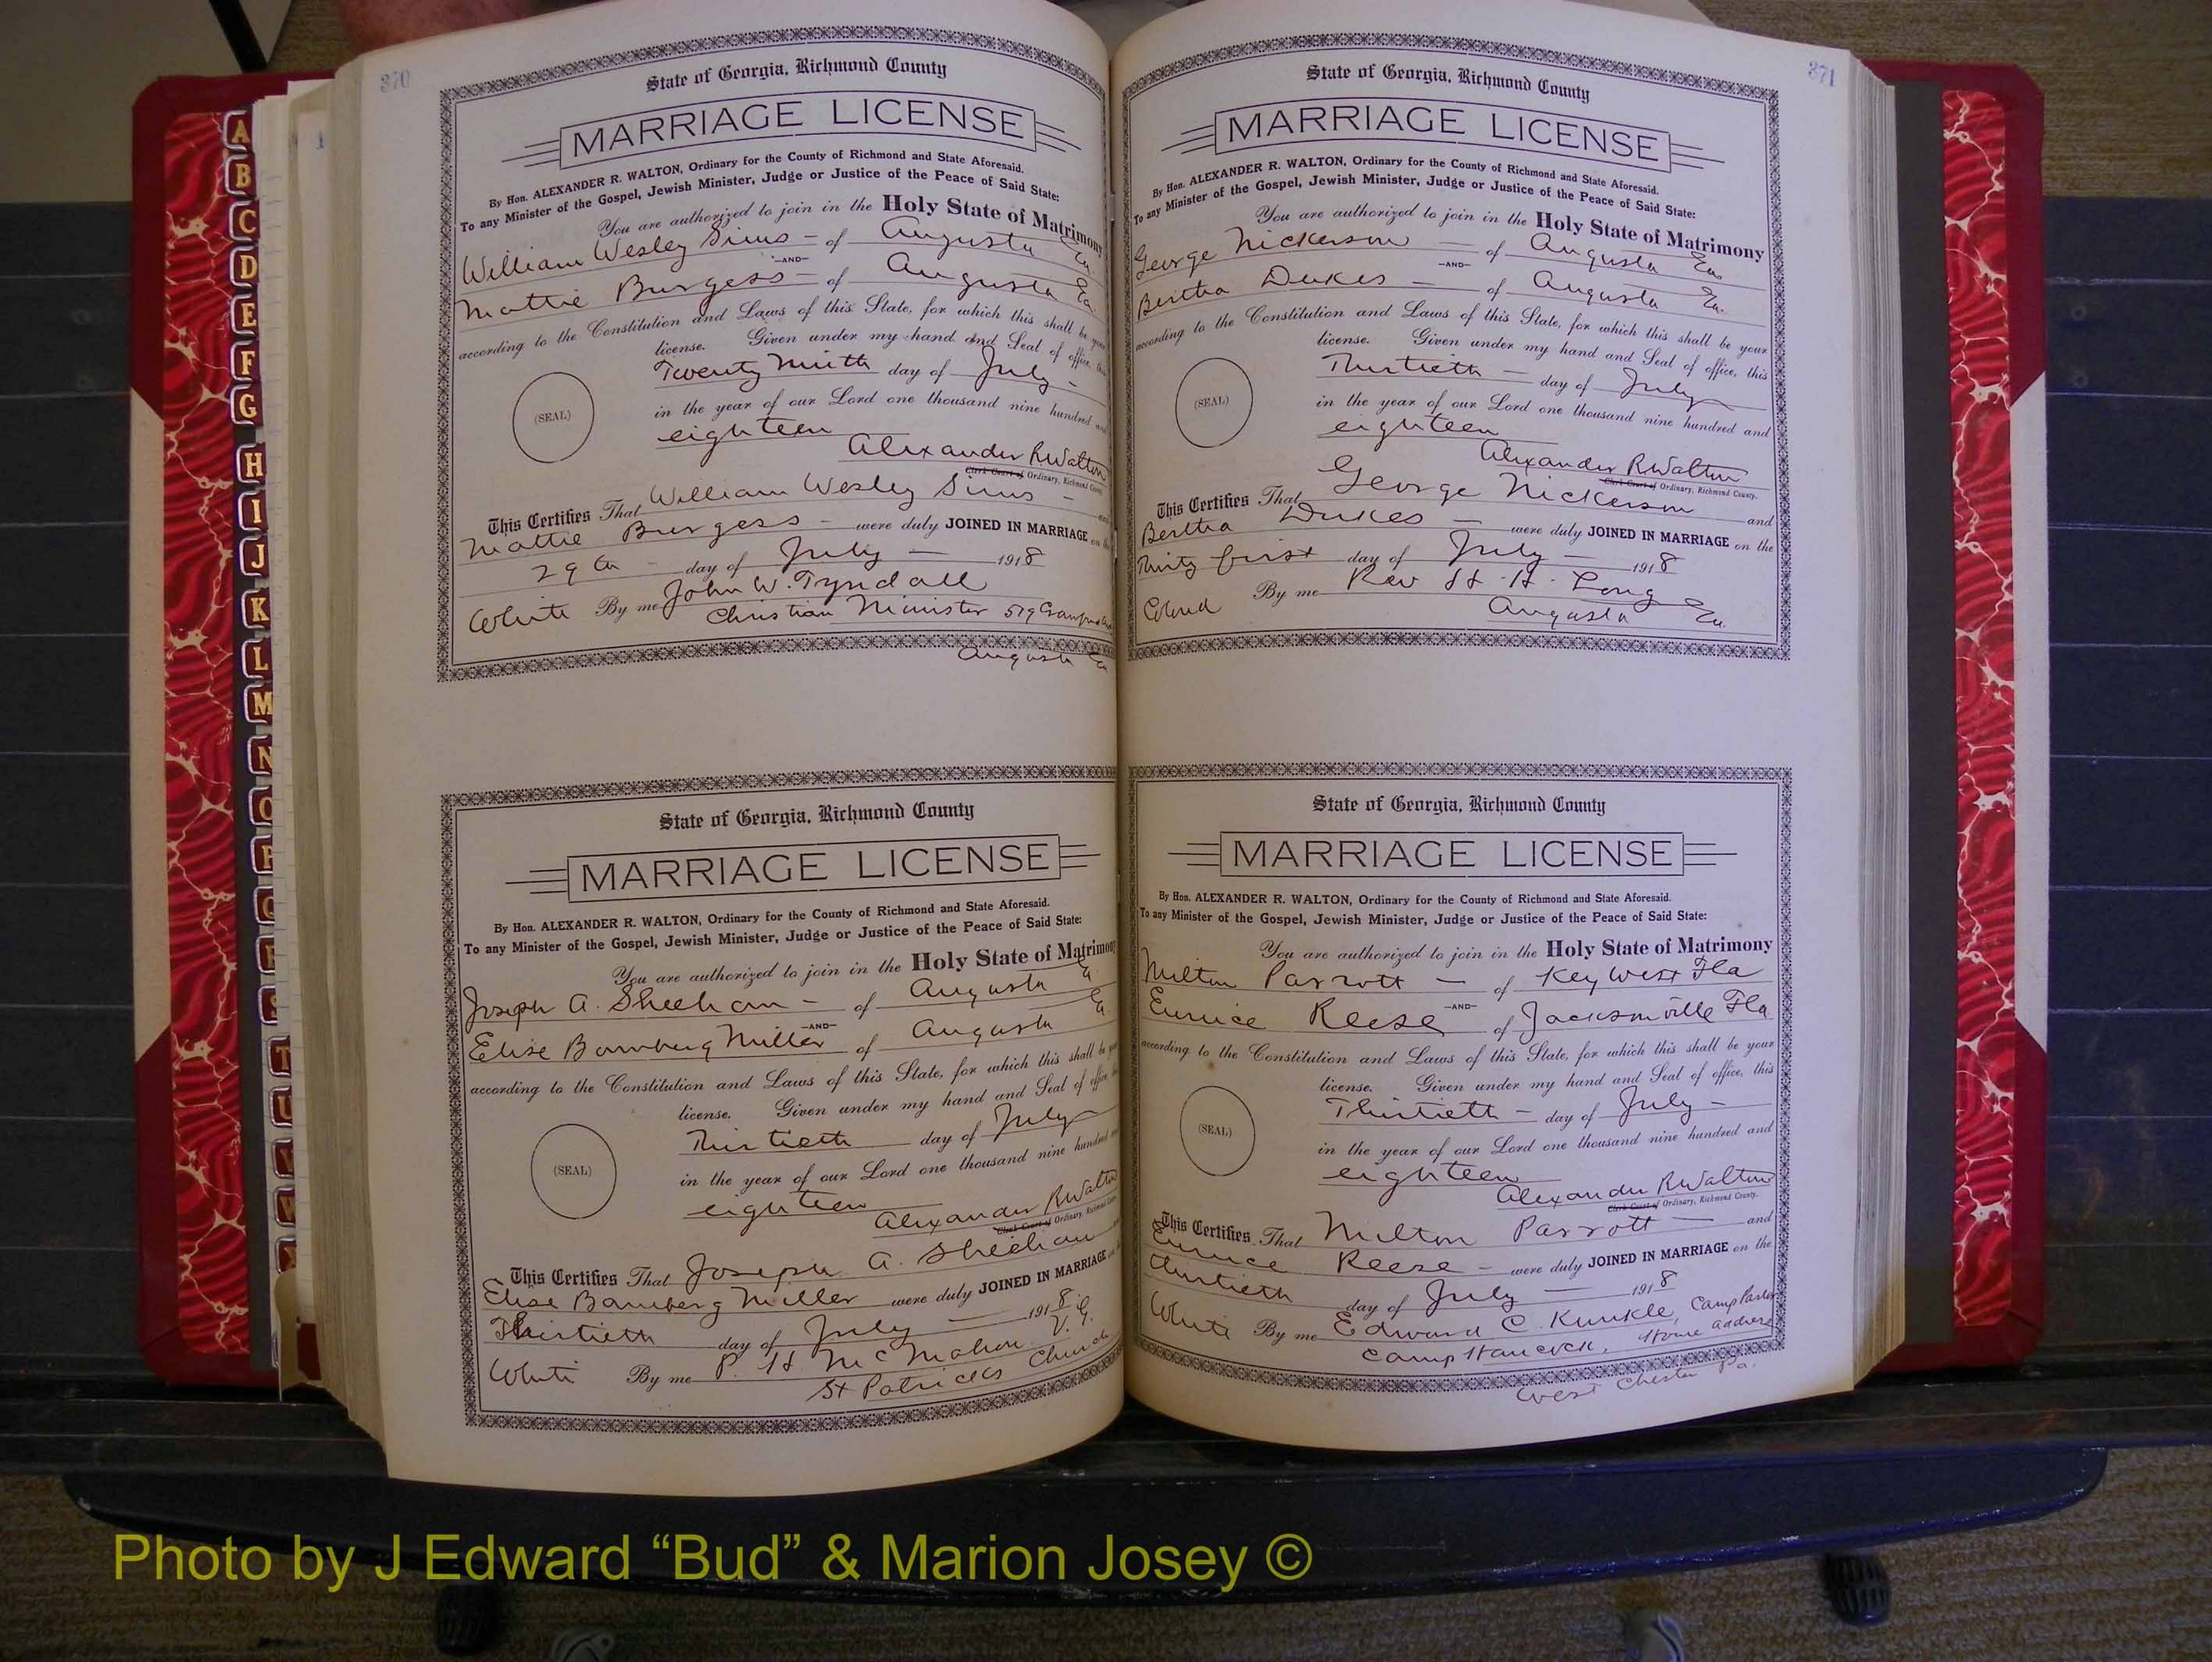 370
State of Georgia, Richmond County
MARRIAGE LICENSE
By Hon. ALEXANDER R. WALTON, Ordinary for the County of Richmond and State Aforesaid.
To any Minister of the Gospel, Jewish Minister, Judge or Justice of the Peace of Said State:
You are authorized to join in the Holy State of Matrimony
William Wesley Sims - of Augusta Ga.
-AND-
Mattie Burgess - of Augusta Ga.
according to the Constitution and Laws of this State, for which this shall be your
license. Given under my hand and Seal of office, this
Twenty Ninth day of July -
(SEAL)
in the year of our Lord one thousand nine hundred and
eighteen
Alexander R Walton
Clerk Court of Ordinary, Richmond County.
This Certifies That William Wesley Sims - and
Mattie Burgess - were duly JOINED IN MARRIAGE on the
29th - day of July - 1918
White By me John W. Tyndall
Christian Minister 519
Augusta Ga
State of Georgia, Richmond County
MARRIAGE LICENSE
By Hon. ALEXANDER R. WALTON, Ordinary for the County of Richmond and State Aforesaid.
To any Minister of the Gospel, Jewish Minister, Judge or Justice of the Peace of Said State:
You are authorized to join in the Holy State of Matrimony
Joseph A. Sheehan - of Augusta Ga.
-AND-
Elise Bamberg Miller of Augusta Ga.
according to the Constitution and Laws of this State, for which this shall be your
license. Given under my hand and Seal of office, this
Thirtieth day of July
(SEAL)
in the year of our Lord one thousand nine hundred and
eighteen
Alexander R Walton
Clerk Court of Ordinary, Richmond County.
This Certifies That Joseph A. Sheehan
Elise Bamberg Miller were duly JOINED IN MARRIAGE on the
Thirtieth day of July - 1918
White By me P. H. McMahon V. G.
St Patricks Church
371
State of Georgia, Richmond County
MARRIAGE LICENSE
By Hon. ALEXANDER R. WALTON, Ordinary for the County of Richmond and State Aforesaid.
To any Minister of the Gospel, Jewish Minister, Judge or Justice of the Peace of Said State:
You are authorized to join in the Holy State of Matrimony
George Nickerson - of Augusta Ga.
-AND-
Bertha Dukes - of Augusta Ga.
according to the Constitution and Laws of this State, for which this shall be your
license. Given under my hand and Seal of office, this
Thirtieth - day of July
(SEAL)
in the year of our Lord one thousand nine hundred and
eighteen
Alexander R Walton
Clerk Court of Ordinary, Richmond County.
This Certifies That George Nickerson and
Bertha Dukes - were duly JOINED IN MARRIAGE on the
Thirty first day of July - 1918
Colored By me Rev H. H. Long
Augusta Ga.
State of Georgia, Richmond County
MARRIAGE LICENSE
By Hon. ALEXANDER R. WALTON, Ordinary for the County of Richmond and State Aforesaid.
To any Minister of the Gospel, Jewish Minister, Judge or Justice of the Peace of Said State:
You are authorized to join in the Holy State of Matrimony
Milton Parrott - of Key West Fla
-AND-
Eunice Reese of Jacksonville Fla
according to the Constitution and Laws of this State, for which this shall be your
license. Given under my hand and Seal of office, this
Thirtieth - day of July -
(SEAL)
in the year of our Lord one thousand nine hundred and
eighteen
Alexander R Walton
Clerk Court of Ordinary, Richmond County.
This Certifies That Milton Parrott - and
Eunice Reese - were duly JOINED IN MARRIAGE on the
thirtieth day of July - 1918
White By me Edward C. Kunkle, Camp Pastor
Camp Hancock, Home address
West Chester Pa.
A
B
C
D
E
F
G
H
I
J
K
L
M
N
O
P
Q
R
S
T
U
V
W
Photo by J Edward “Bud” & Marion Josey ©